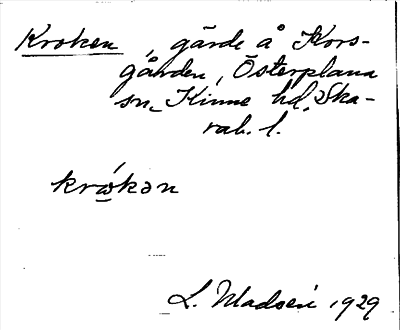 Kroken, gärde å Kors-
gården, Österplana
sn, Kinne hd, Ska-
rab. l.
krὼkən
L. Madsén 1929